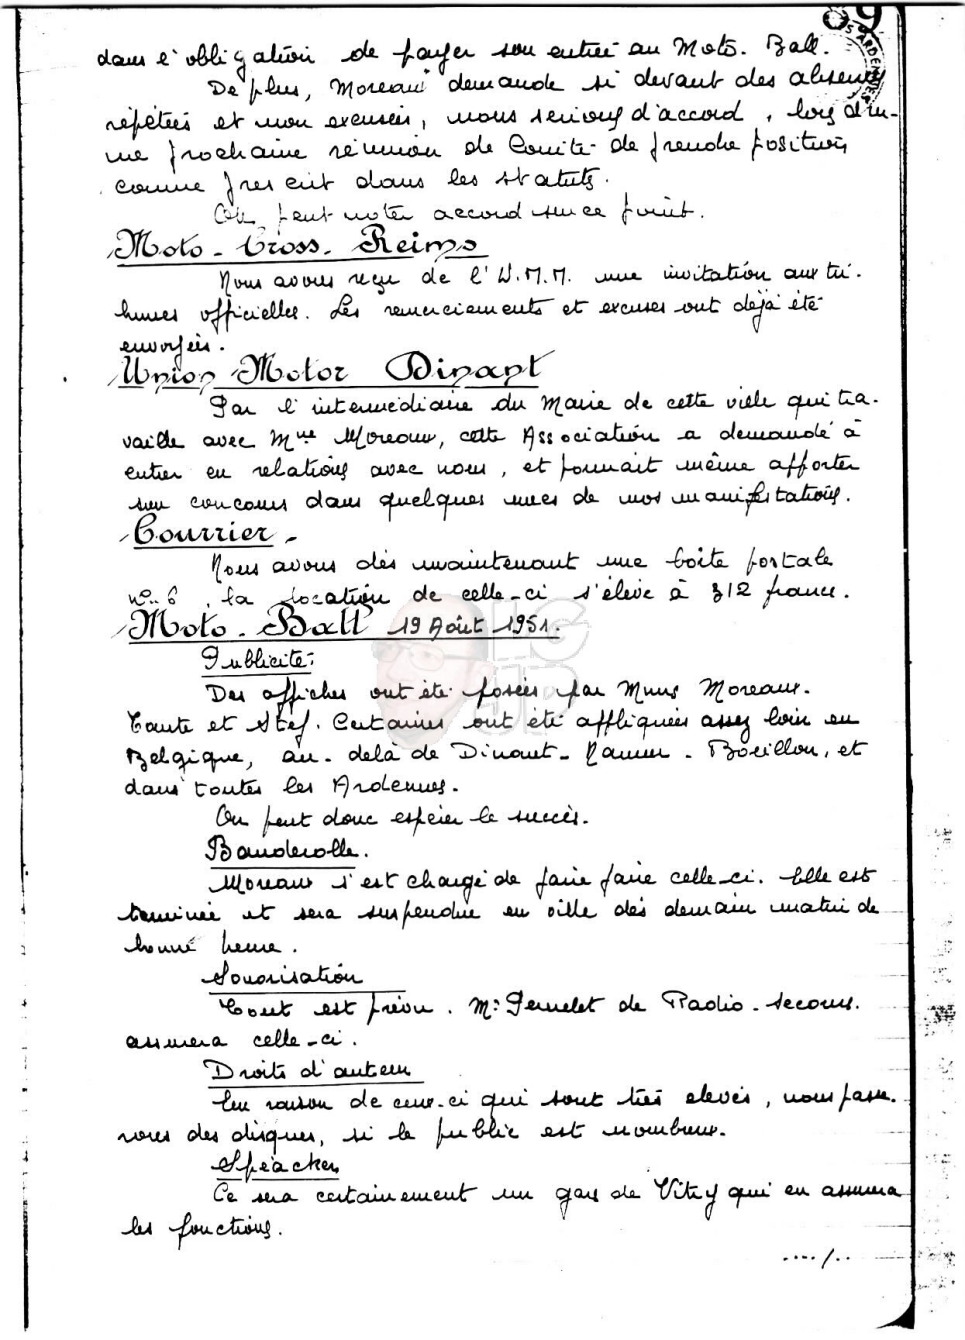 89
S ARDENNES
dans l'obligation de payer son entrée au Moto-Ball.
De plus, Moreaux demande si devant des absences
répétées et non excusées, nous serions d'accord, lors d'u-
ne prochaine réunion de Comité de prendre position,
comme prescrit dans les statuts.
On peut noter accord sur ce point.
Moto-Cross-Reims
Nous avons reçu de l'U.M.M. une invitation aux tri-
bunes officielles. Les remerciements et excuses ont déjà été
envoyées.
Union Motor Dinant
Par l'intermédiaire du Maire de cette ville qui tra-
vaille avec Mme Moreaux, cette Association a demandé à
entrer en relations avec nous, et pourrait même apporter
son concours dans quelques unes de nos manifestations.
Courrier-
Nous avons dès maintenant une boîte postale
n° 6, la location de celle-ci s'élève à 312 francs.
Moto-Ball 19 Août 1951.
Publicité:
Des affiches ont été posées par Moreaux.
et Stef. Certaines ont été appliquées assez loin en
Belgique, au-delà de Dinant-Namur-Bouillon, et
dans toutes les Ardennes.
On peut donc espérer le succès.
Banderolle.
Moreaux s'est chargé de faire faire celle-ci. Elle est
terminée et sera suspendue en ville dès demain matin de
bonne heure.
Sonorisation
Tout est prévu. Mr Pernelet de Radio-Secours.
assurera celle-ci.
Droits d'auteur
En raison de ceux-ci qui sont très élevés, nous passe-
rons des disques, si le public est nombreux.
Speacker
Ce sera certainement un gars de Vitry qui en assurera
les fonctions.
..../..